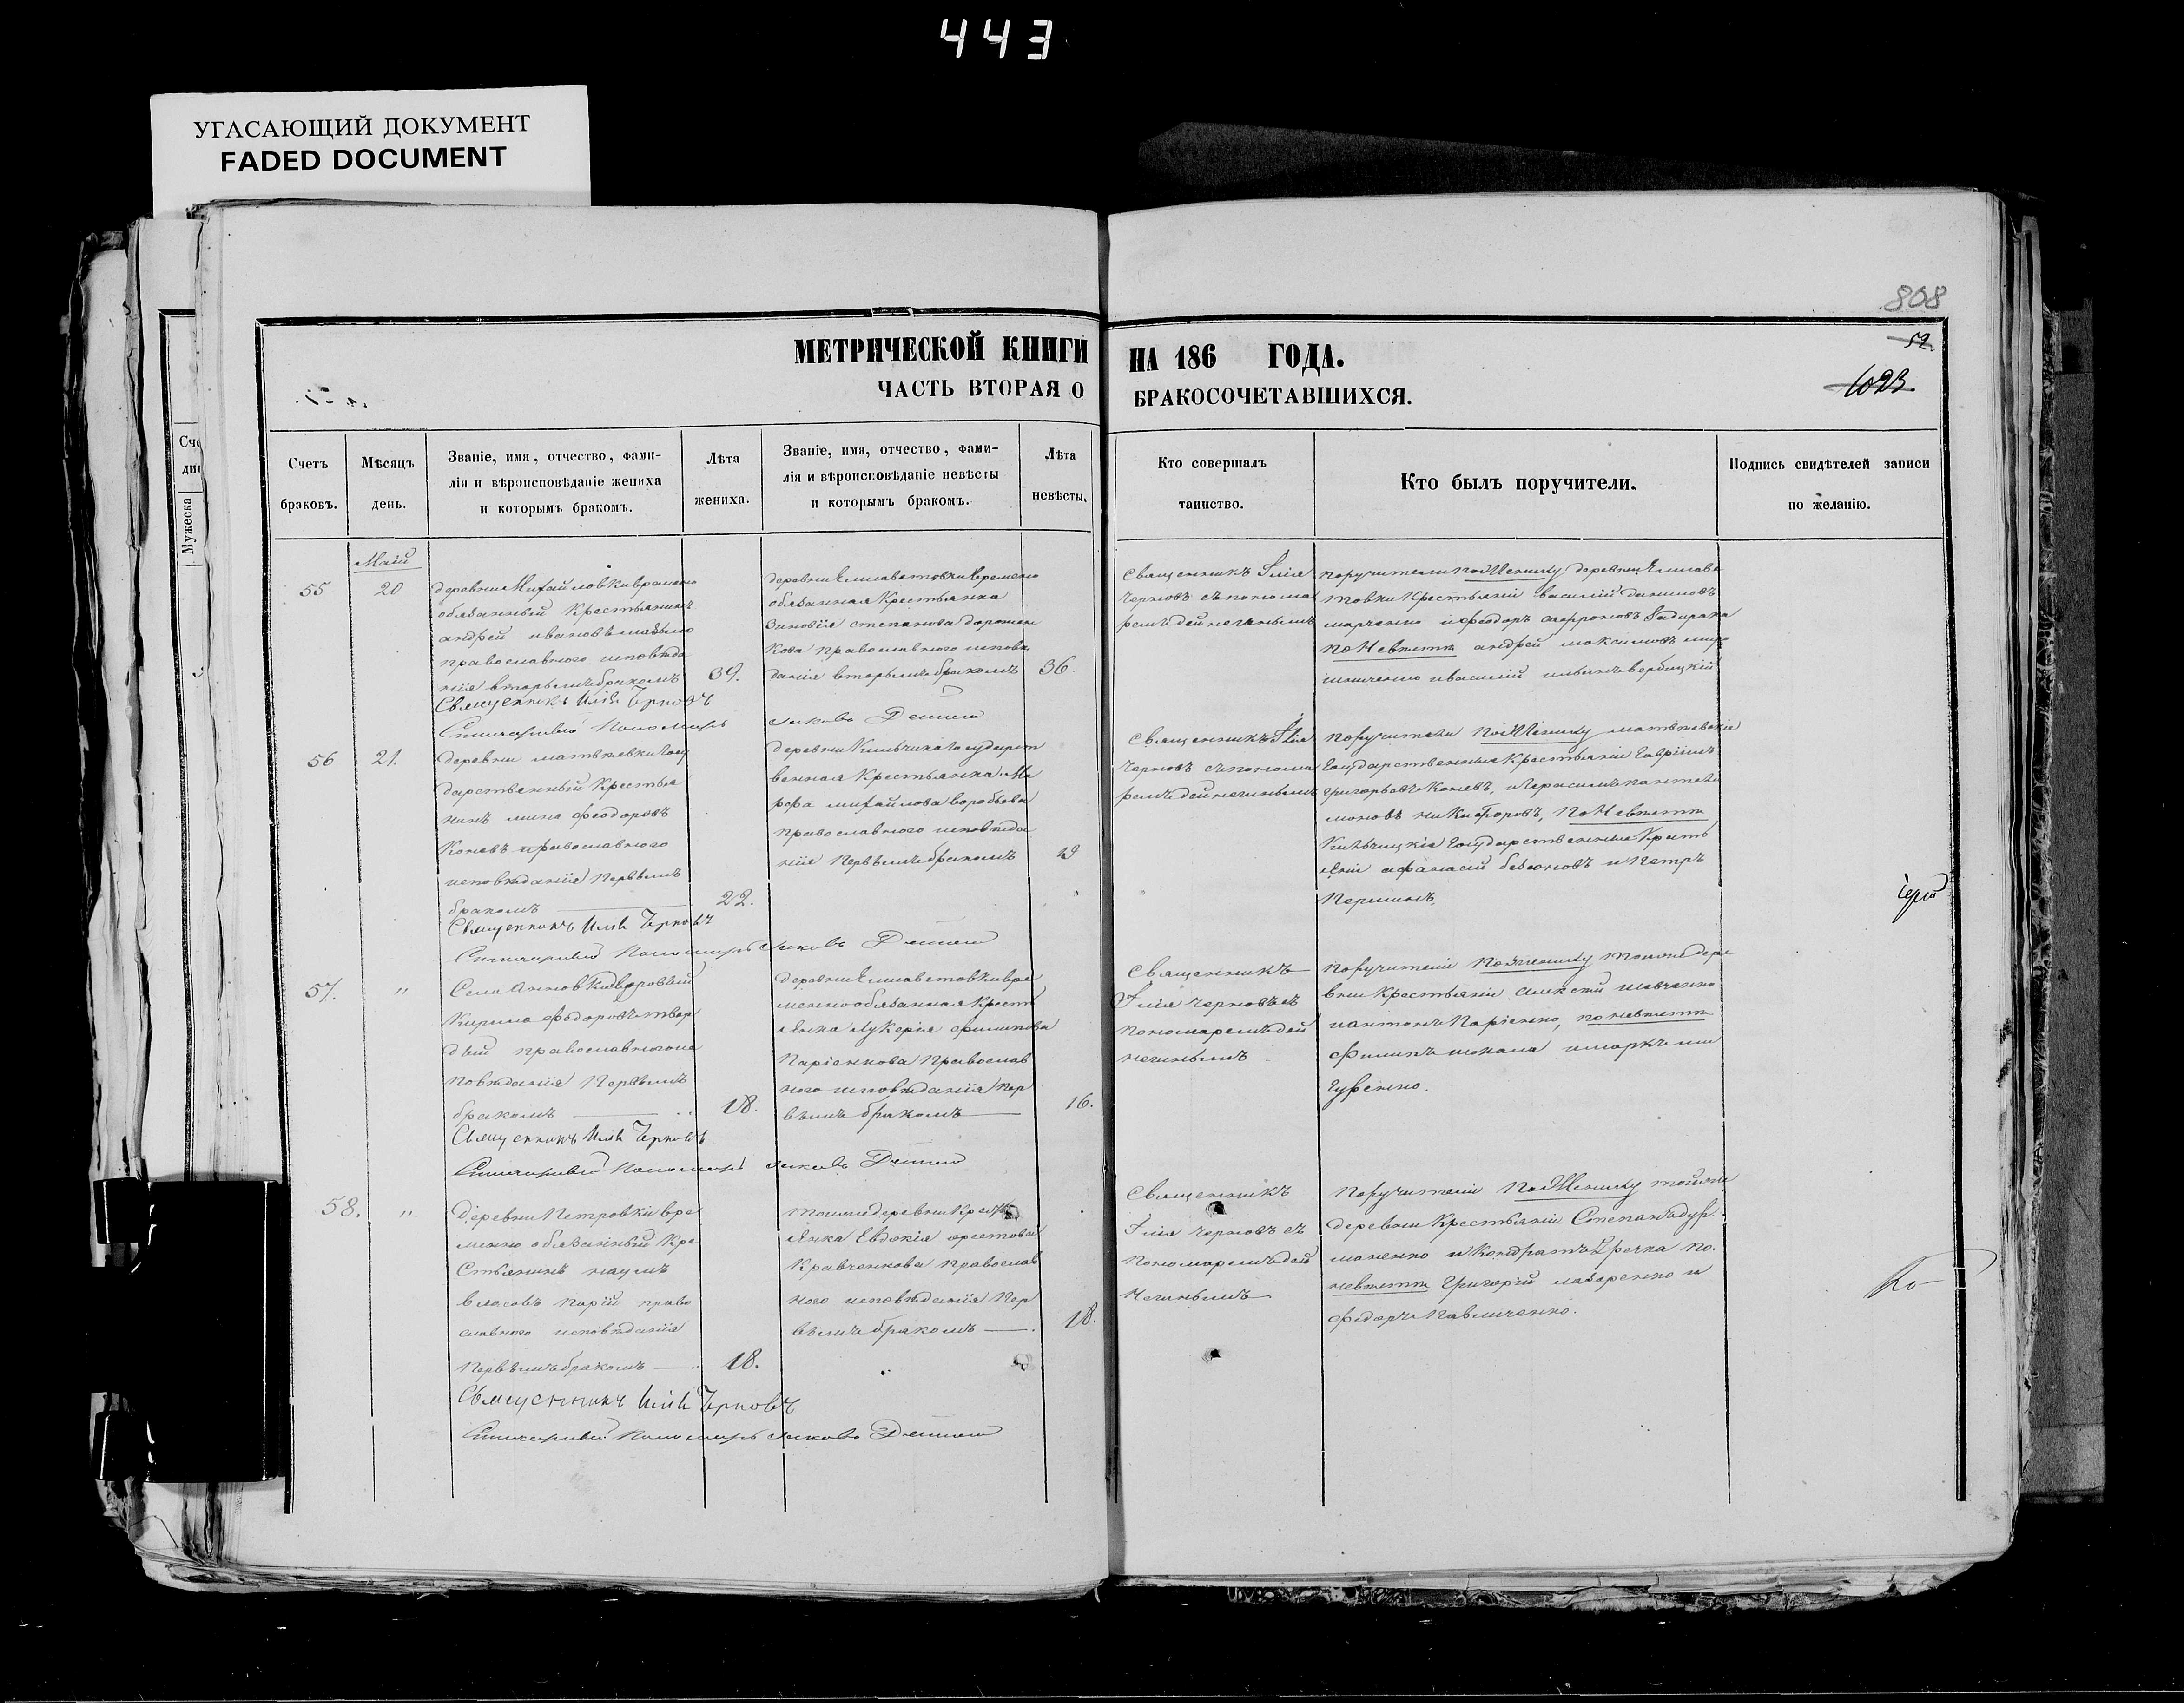 443
УГАСАЮЩИЙ ДОКУМЕНТ
FADED DOCUMENT
808
МЕТРИЧЕСКОЙ КНИГИ НА 186 ГОДА.
52.
1023.
ЧАСТЬ ВТОРАЯ О БРАКОСОЧЕТАВШИХСЯ.
Мужеска
Счетъ
браковъ.
Мѣсяцъ
день.
Званіе, имя, отчество, фами-
лія и вѣроисповѣданіе жениха
и которымъ бракомъ.
Лѣта
жениха.
Званіе, имя, отчество, фами-
лія и вѣроисповѣданіе невѣсты
и которымъ бракомъ.
Лѣта
невѣсты.
Кто совершалъ
таинство.
Кто былъ поручители.
Подпись свидѣтелей записи
по желанію.
Май
55
20
деревни Михайловки временно
обязанный Крестьянинъ
андрей ивановъ
православного исповѣда
нія вторымъ бракомъ
39.
деревни Елисаветовки временно
обязанная Крестьянка
Зиновія степанова
кова православного исповѣ
данія вторымъ бракомъ
36.
священникъ Илія
Черновъ съ понома
ремъ дейнегинымъ
поручители по Жениху деревни Елисаве
товки Крестьяніи василій даниловъ
марченко и феодоръ
по Невѣсте андрей максимовъ
и василій ильинъ вербицкій
Священникъ Илія Черновъ
Стихарный Пономарь Яковъ
56
21.
деревни матвѣевки Госу
дарственный Крестья
нинъ мина феодоровъ
Коневъ православного
исповѣданія Первымъ
бракомъ
22.
деревни Кильчика Государст
венная Крестьянка Ма
рфа михайлова воробьова
православного исповѣда
нія Первымъ бракомъ
19
священникъ Илія
Черновъ съ понома
ремъ дейнегинымъ
поручители по Жениху матвѣевскіе
Государственныя Крестьяніи Гаврiилъ
григорьевъ Коневъ, и Герасимъ пантелѣ
моновъ никифоровъ, По Невѣсте
Государственныя Кресть
яніи афанасій и Петръ
Першинъ.
Священникъ Илія Черновъ
Стихарный Пономарь Яковъ
57.
"
Села Анновки дворовый
Кирило федоровъ твер
дый православного ис
повѣданія Первымъ
бракомъ
18.
деревни Елисаветовки вре
менно обязанная Кресть
янка Лукерія филипова
Паріенкова Православ
ного исповѣданія пер
вымъ бракомъ
16.
священникъ
Илія Черновъ съ
пономаремъ дей
негинымъ
поручители по жениху тоиже дере
вни Крестьяніи алексѣй шевченко
и антонъ Паріенко, по невѣсте
Филипъ и маркъ
Священникъ Илія Черновъ
Стихарный Пономарь Яковъ
58.
"
деревни Петровки вре
менно обязанный Кре
стьянинъ наумъ
власовъ парій право
славного исповѣданія
Первымъ бракомъ
18.
тоиже деревни Кресть
янка Евдокія
Кравченкова православ
ного исповѣданія Пер
вымъ бракомъ
18.
священникъ
Илія Черновъ съ
пономаремъ дей
негинымъ
поручители По Жениху тойже
деревни Крестьяніи Степанъ
и Кондратъ по
невѣсте Григорій лазаренко и
федоръ Павличенко.
Священникъ Илія Черновъ
Стихарный Пономарь Яковъ